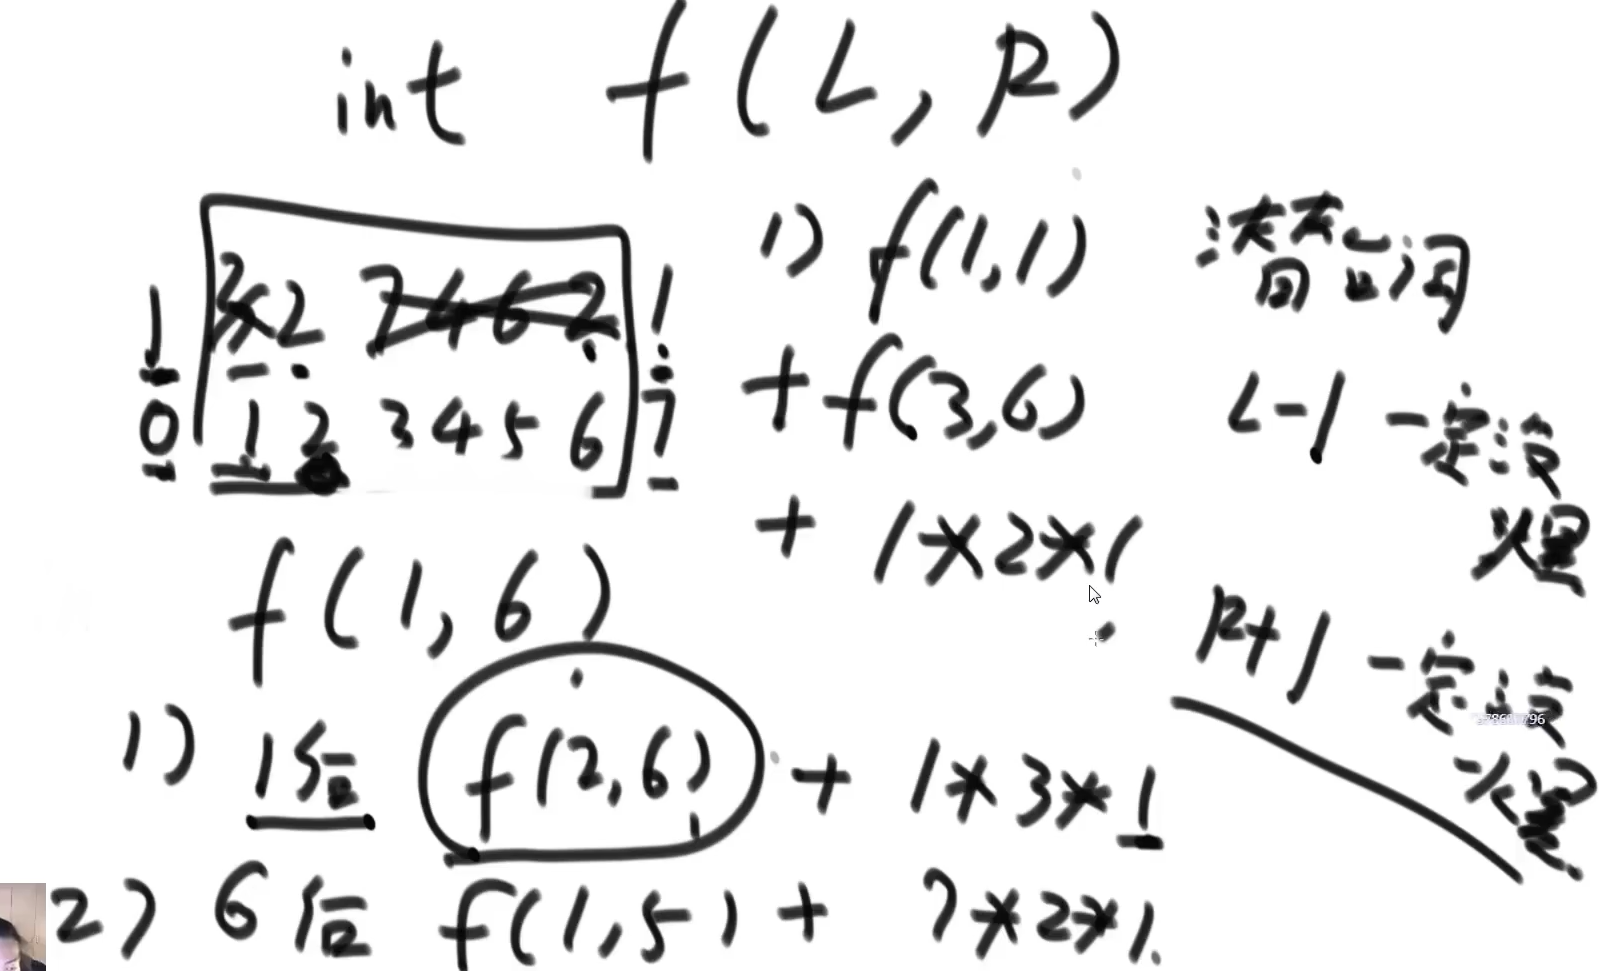 int f(L, R)
1) f(1,1)
+ f(3,6)
+ 1*2*1
潜台词
L-1 一定没
爆
R+1 一定没
爆
1 3 2 7 4 6 2 1
0 1 2 3 4 5 6 7
f(1,6)
1) 1位 f(2,6) + 1*3*1
2) 6位 f(1,5) + 7*2*1.